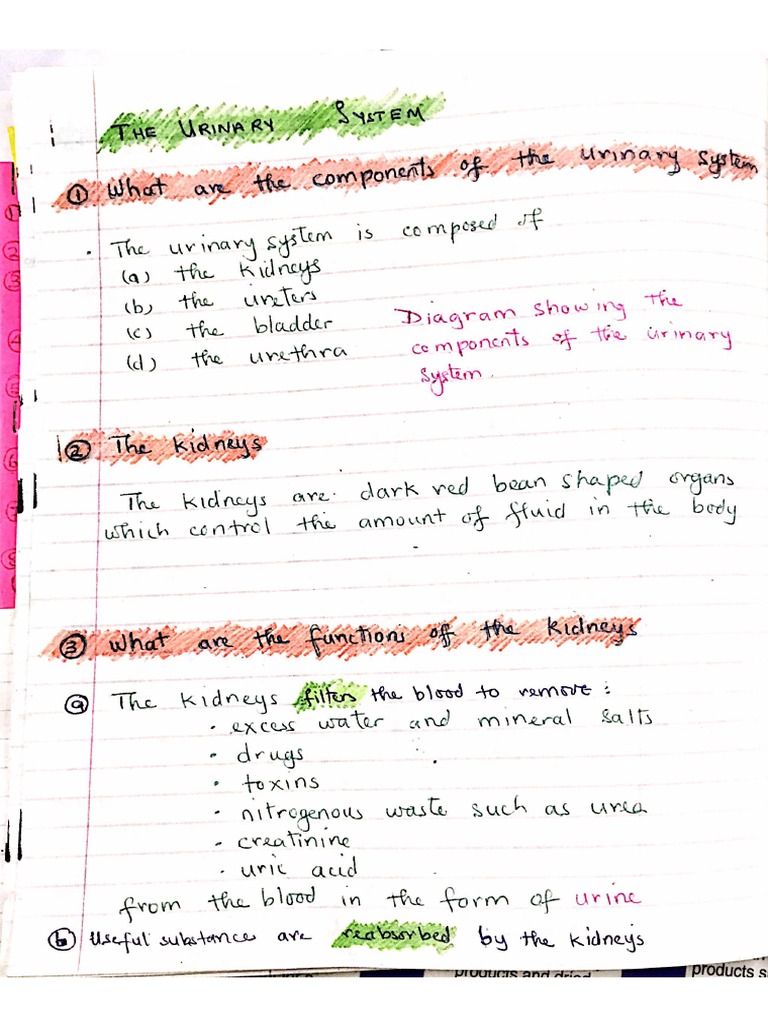 THE URINARY SYSTEM
① What are the components of the urinary system
. The urinary system is composed of
(a) the kidneys
(b) the ureters
(c) the bladder
(d) the urethra
Diagram showing the
components of the urinary
system.
② The kidneys
The kidneys are dark red bean shaped organs
which control the amount of fluid in the body
③ What are the functions off the kidneys
ⓐ The kidneys filters the blood to remove :
· excess water and mineral salts
· drugs
· toxins
· nitrogenous waste such as urea
· creatinine
· uric acid
from the blood in the form of urine
ⓑ Useful substance are reabsorbed by the kidneys
products s